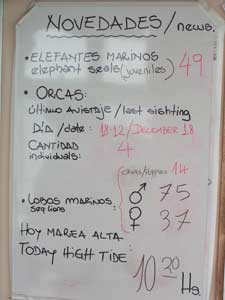 NOVEDADES / news.
• ELEFANTES MARINOS
elephant seals (juveniles) 49
• ORCAS:
último avistaje / last sighting
DÍA / date: 18.12 / DECEMBER 18
CANTIDAD
individuals: 4
crías / puppies 14
♂ 75
• LOBOS MARINOS
sea lions
♀ 37
HOY MAREA ALTA
TODAY HIGH TIDE:
10:30 Hs.